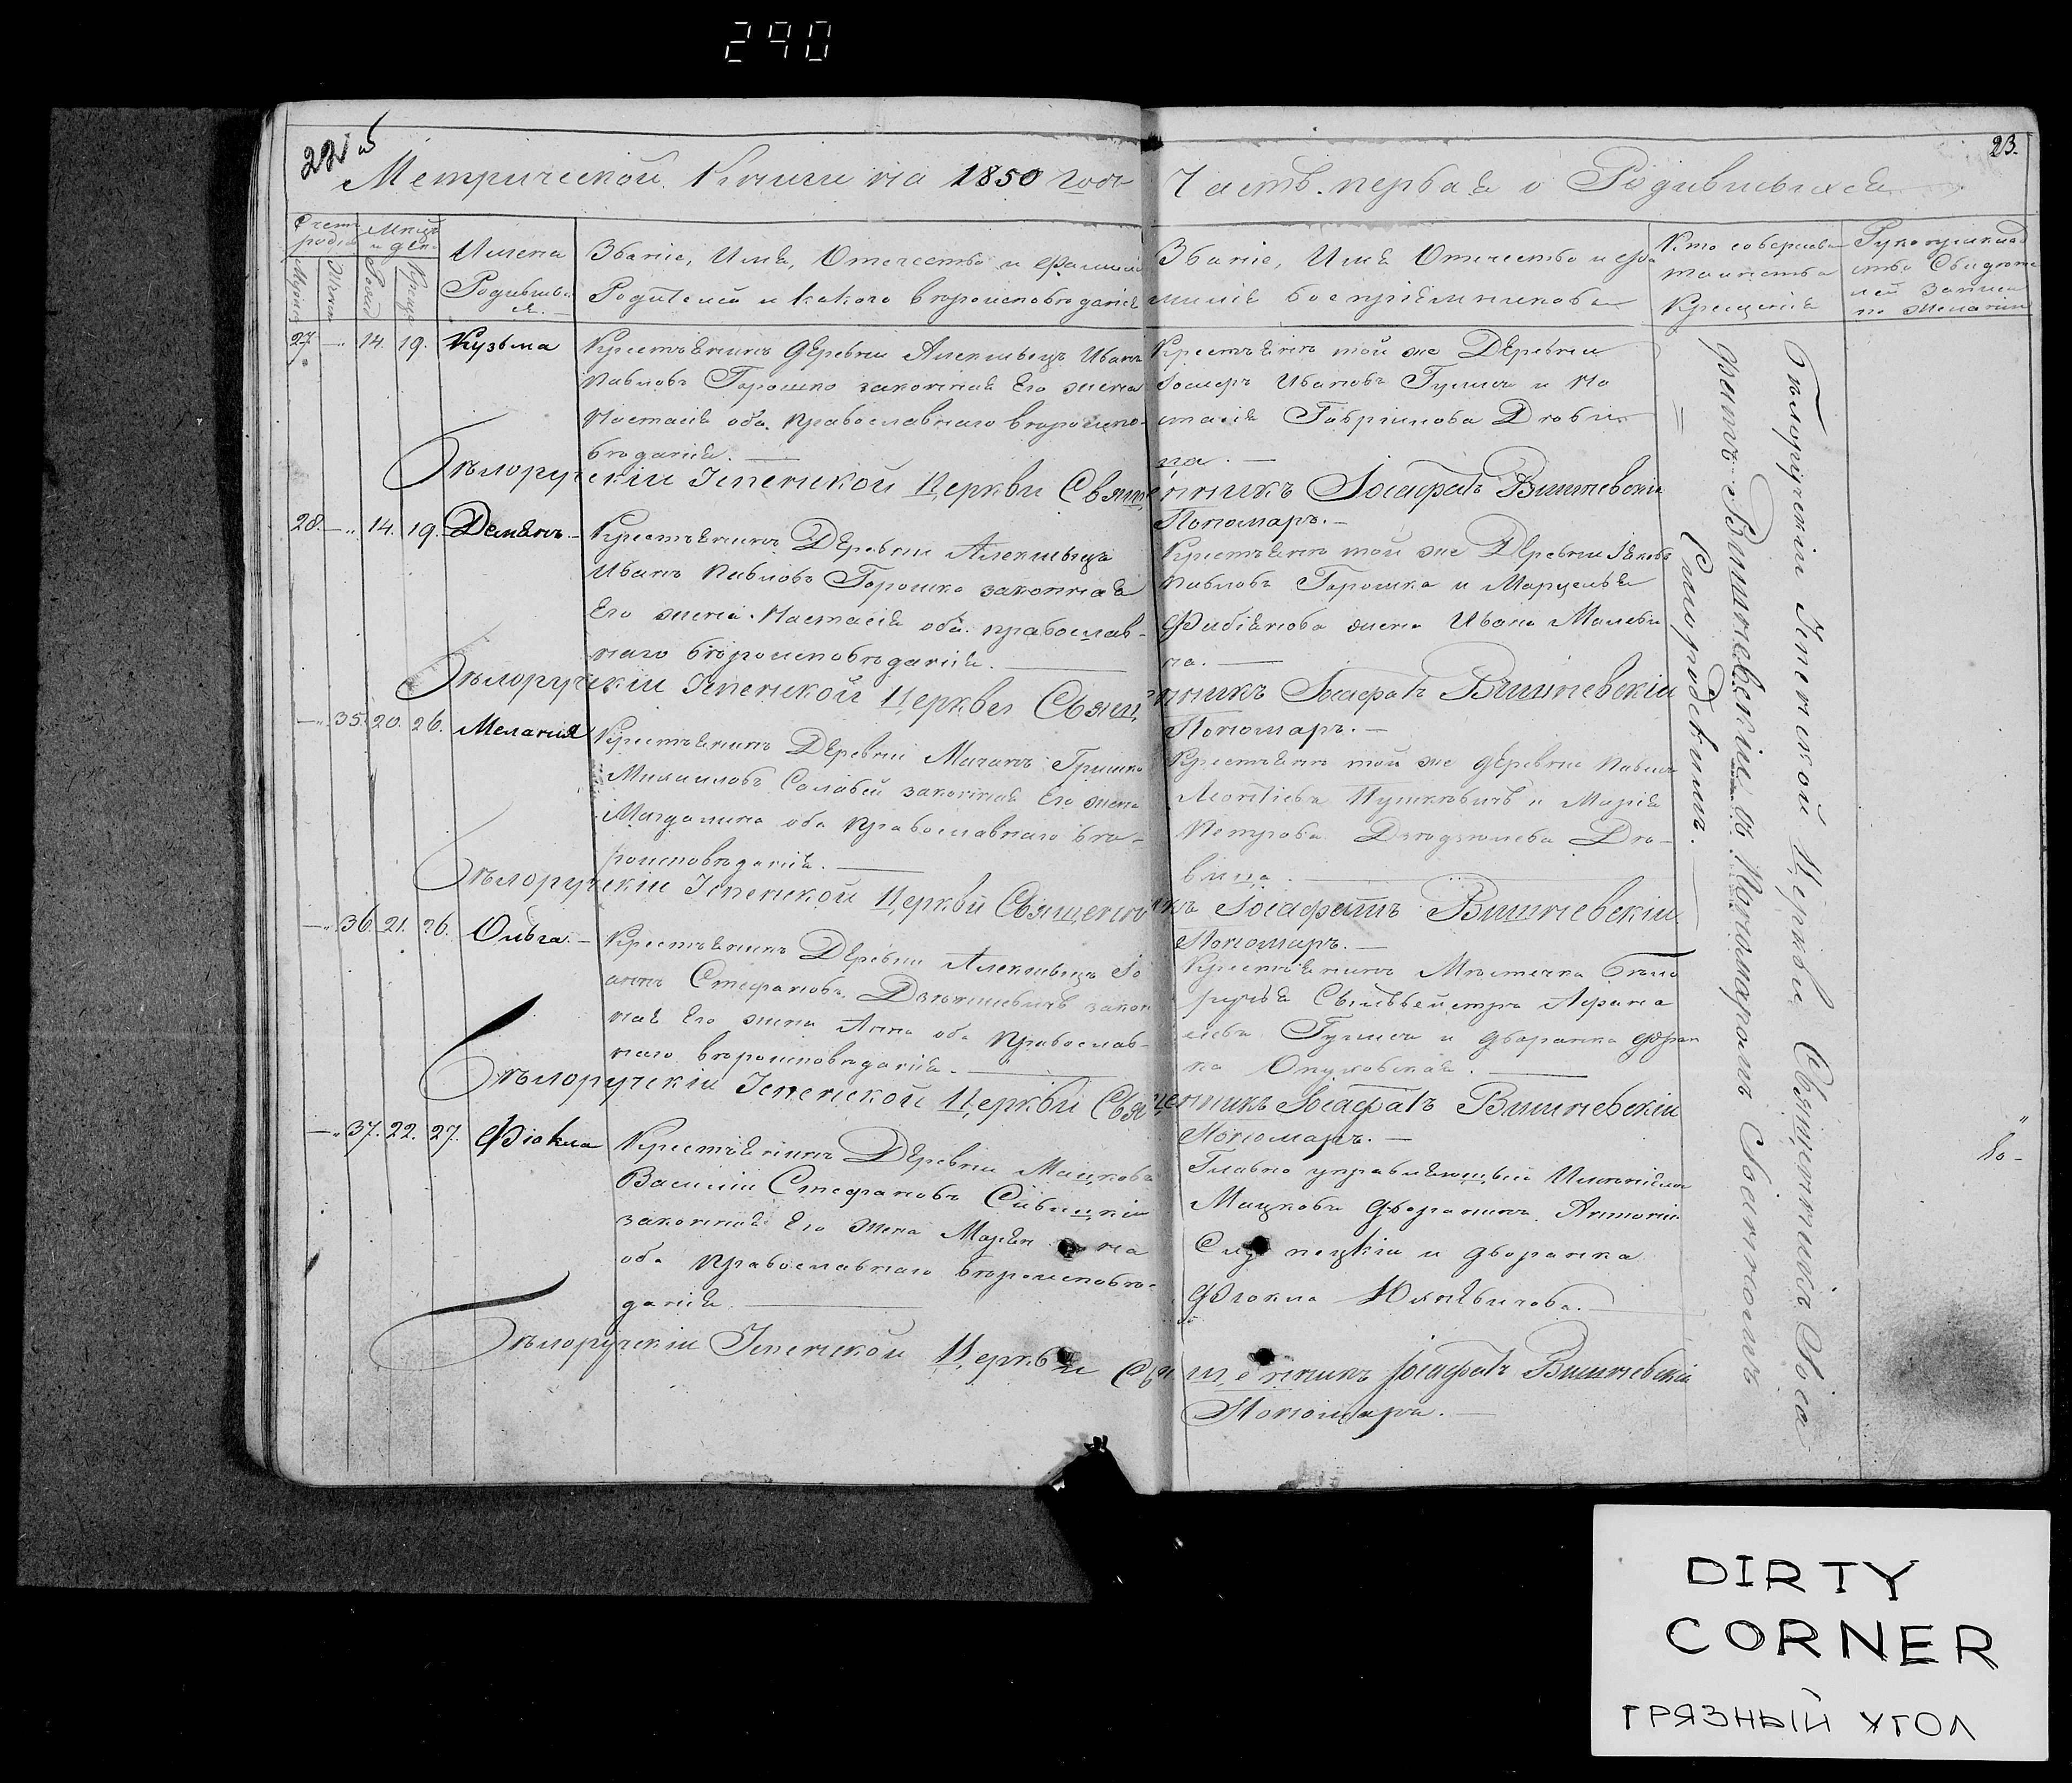 290
22 об
23.
Метрической Книги на 1850 годъ
Часть первая о Родившихся
Счетъ родив
Мѣсяцъ и день
Мужеск
Женск
Рожд
Крещ
Имена Родившихся.
Званіе, Имя, Отечество и Фамилія
Родителей и какого вѣроисповѣданія
Званіе, Имя Отечество и фа
милія воспріемниковъ
Кто совершалъ
таинство
Крещенія
Рукоприклад
ство Свидѣте
лей записи
по желанію
27 — 14. 19. Кузьма
Крестьянинъ деревни Алекшицъ Иванъ
Павловъ Горошко законная Его жена
Настасія оба Православнаго вѣроиспо-
вѣданія. —
Крестьянинъ той же Деревни
Іосифъ Ивановъ Гумма и На
талія Гавріилова Дѣви
ца. —
Бѣлоручскій Успенской Церкви Священникъ Іосафатъ Вишневскій
Пономарь. —
28. — 14. 19. Демьянъ —
Крестьянинъ Деревни Алекшицъ
Иванъ Павловъ Горошко законная
Его жена Настасія оба православ-
наго вѣроисповѣданія. —
Крестьянинъ той же Деревни Яковъ
Павловъ Горошко и Марцелья
Фибіянова жена Ивана
на. —
Бѣлоручскій Успенской Церкви Священникъ Іосафатъ Вишневскій
Пономарь. —
— 35. 20. 26. Меланія
Крестьянинъ Деревни Мачаны Гришко
Михаиловъ Соловей законная Его жена
Магдалина оба Православнаго вѣ-
роисповѣданія. —
Крестьянинъ той же деревни Павелъ
Леонтіевъ Пушкевичъ и Марія
Петрова Дѣ-
вица. —
Бѣлоручскій Успенской Церкви Священникъ Іосафатъ Вишневскій
Пономарь. —
— 36. 21. 26. Ольга. —
Крестьянинъ Деревни Алекшицъ Іо
аннъ Стефановъ закон
ная Его жена Анна оба Православ-
наго вѣроисповѣданія. —
Крестьянинъ Мѣстечка Бѣло
ручья Сыльвестръ Афана
сіевъ Гумма и дворянка Фран
ка Окуловская. —
Бѣлоручскій Успенской Церкви Священникъ Іосафатъ Вишневскій
Пономарь. —
— 37. 22. 27. Фіокла
Крестьянинъ Деревни Мацковъ
Василій Стефановъ Сивицкій
законная Его жена Марьяна
оба Православнаго вѣроисповѣ-
данія —
Главно управляющый Имѣніемъ
Мацковъ дворянинъ Антоній
и дворянка
Фіокла —
Бѣлоручскій Успенской Церкви Священникъ Іосафатъ Вишневскій
Пономарь. —
Бѣлоручскій Успенской Церкви Священникъ Іоса
фатъ Вишневскій съ Пономаремъ
DIRTY
CORNER
ГРЯЗНЫЙ УГОЛ